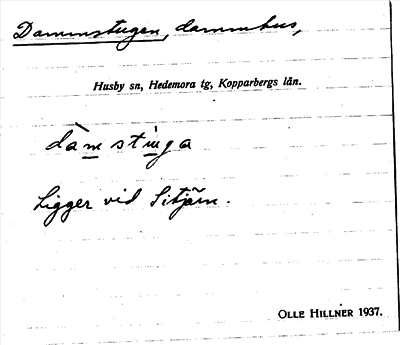 Dammstugen, dammhus,
Husby sn, Hedemora tg, Kopparbergs län.
dàmstiṇga
Ligger vid Sitjärn.
OLLE HILLNER 1937.